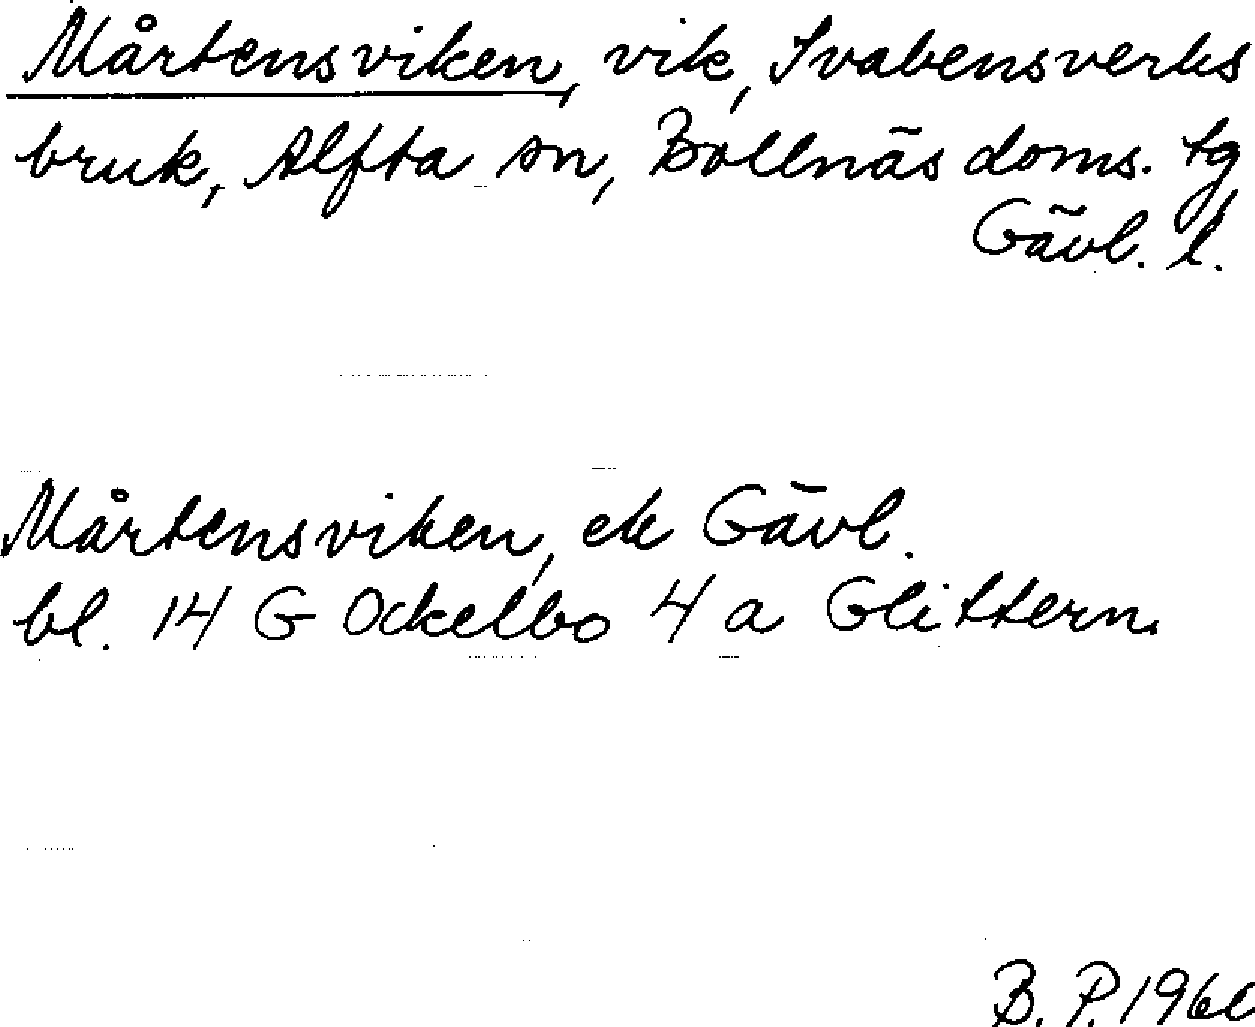 Mårtensviken, vik, Svabensverks
bruk, Alfta sn, Bollnäs doms. tg
Gävl. l.
Mårtensviken, ek Gävl.
bl. 14 G Ockelbo 4 a Glittern.
B. P. 1960